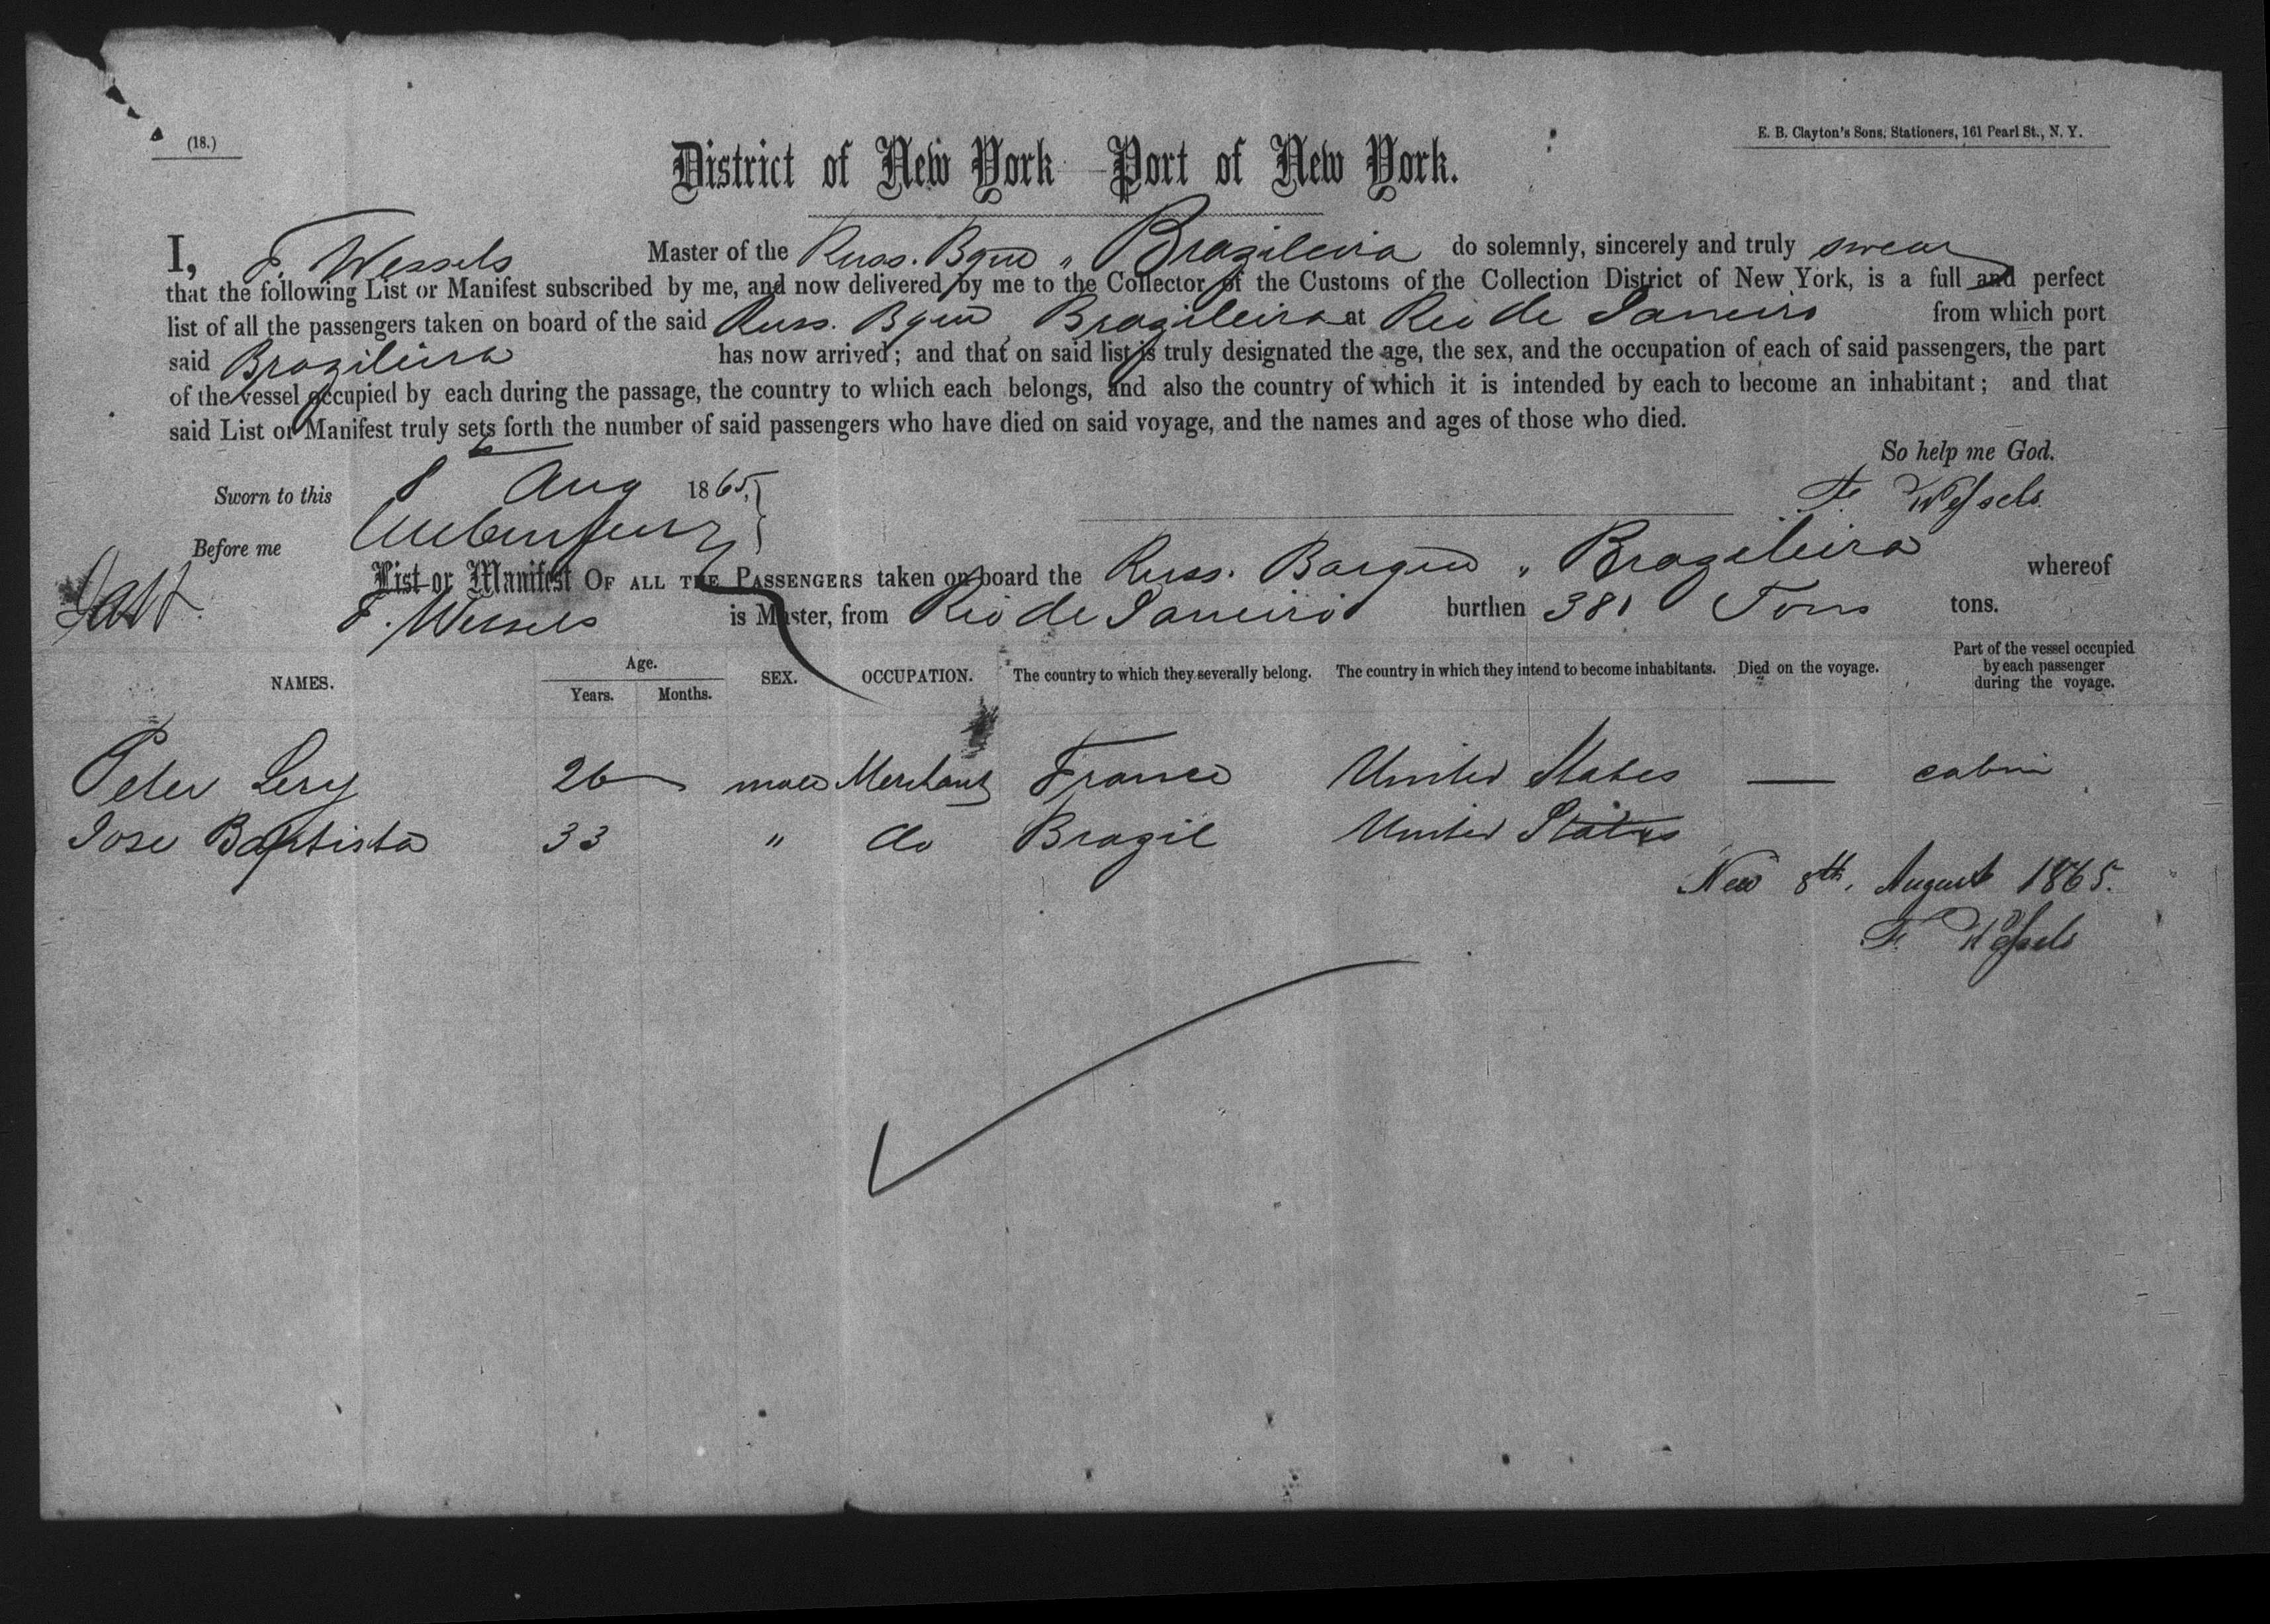 (18.)
E. B. Clayton's Sons, Stationers, 161 Pearl St., N. Y.
District of New York—Port of New York.
I, F. Wessels Master of the Russ. Bque „ Brazileira do solemnly, sincerely and truly swear
that the following List or Manifest subscribed by me, and now delivered by me to the Collector of the Customs of the Collection District of New York, is a full and perfect
list of all the passengers taken on board of the said Russ. Bque Brazileira at Rio de Janeiro from which port
said Brazileira has now arrived; and that on said list is truly designated the age, the sex, and the occupation of each of said passengers, the part
of the vessel occupied by each during the passage, the country to which each belongs, and also the country of which it is intended by each to become an inhabitant; and that
said List or Manifest truly sets forth the number of said passengers who have died on said voyage, and the names and ages of those who died.
So help me God.
Sworn to this 8 Aug 1865,
F. Wessels.
Before me
List or Manifest OF ALL THE PASSENGERS taken on board the Russ. Barque „ Brazileira whereof
F. Wessels is Master, from Rio de Janeiro burthen 381 Tons tons.
NAMES. Age. Years. Months. SEX. OCCUPATION. The country to which they severally belong. The country in which they intend to become inhabitants. Died on the voyage. Part of the vessel occupied by each passenger during the voyage.
Peter Lery 26 male Merchant France United States — cabin
Jose Baptista 33 " do Brazil United States
New 8th. August 1865.
F. Wessels